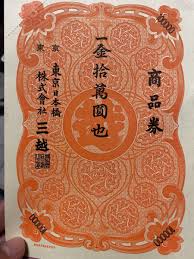 商品券
一金拾萬圓也
東京
東京日本橋
株式會社 三越